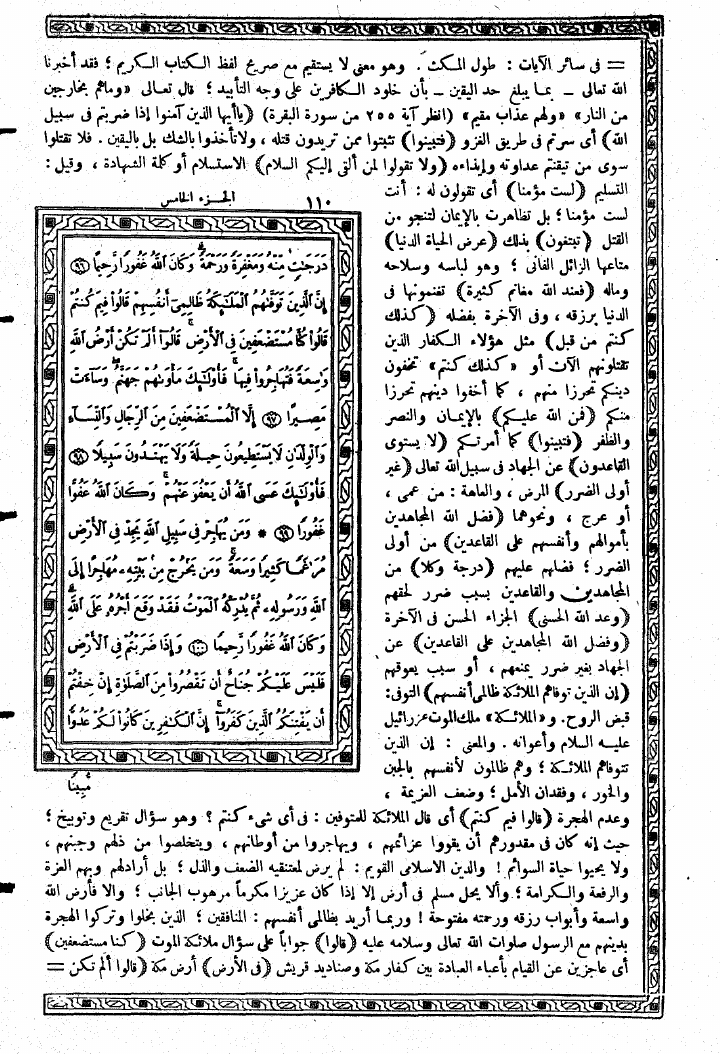 = فى سائر الآيات : طول المكث . وهو معنى لا يستقيم مع صريح لفظ الكتاب الكريم ؛ فقد أخبرنا
الله تعالى – بما يبلغ حد اليقين – بأن خلود الكافرين على وجه التأبيد ؛ قال تعالى «وماهم بخارجين
من النار» «ولهم عذاب مقيم» (انظر آية ٢٥٥ من سورة البقرة) (ياأيها الذين آمنوا إذا ضربتم فى سبيل
الله) أى سرتم فى طريق الغزو (فتبينوا) تثبتوا ممن تريدون قتله ، ولاتأخذوا بالشك بل باليقين . فلا تقتلوا
سوى من تيقنتم عداوته وإيذاءه (ولا تقولوا لمن ألقى إليكم السلام) الاستسلام أو كلمة الشهادة ، وقيل :
التسليم (لست مؤمنا) أى تقولون له : أنت
لست مؤمنا ؛ بل تظاهرت بالإيمان لتنجو من
القتل (تبتغون) بذلك (عرض الحياة الدنيا)
متاعها الزائل الفانى ؛ وهو لباسه وسلاحه
وماله (فعند الله مغانم كثيرة) تغنمونها فى
الدنيا برزقه ، وفى الآخرة بفضله (كذلك
كنتم من قبل) مثل هؤلاء الكفار الذين
تقتلونهم الآن أو «كذلك كنتم» تخفون
دينكم تحرزا منهم ، كما أخفوا دينهم تحرزا
منكم (فمن الله عليكم) بالإيمان والنصر
والظفر (فتبينوا) كما أمرتكم (لا يستوى
القاعدون) عن الجهاد فى سبيل الله تعالى (غير
أولى الضرر) المرض ، والعاهة : من عمى ،
أو عرج ، ونحوهما (فضل الله المجاهدين
بأموالهم وأنفسهم على القاعدين) من أولى
الضرر ؛ فضلهم عليهم (درجة وكلا) من
المجاهدين والقاعدين بسبب ضرر لحقهم
(وعد الله الحسنى) الجزاء الحسن فى الآخرة
(وفضل الله المجاهدين على القاعدين) عن
الجهاد بغير ضرر يمنعهم ، أو سبب يعوقهم
(إن الذين توفاهم الملائكة ظالمى أنفسهم) التوفى:
قبض الروح. و«الملائكة» ملك الموت عزرائيل
عليه السلام وأعوانه . والمعنى : إن الذين
تتوفاهم الملائكة ؛ وهم ظالمون لأنفسهم بالجبن
والخور ، وفقدان الأمل ؛ وضعف العزيمة ،
١١٠ الجزء الخامس
دَرَجَٰتٍ مِّنْهُ وَمَغْفِرَةً وَرَحْمَةً ۚ وَكَانَ اللَّهُ غَفُورًا رَّحِيمًا ﴿٩٦﴾
إِنَّ الَّذِينَ تَوَفَّىٰهُمُ الْمَلَٰٓئِكَةُ ظَالِمِىٓ أَنفُسِهِمْ قَالُوا فِيمَ كُنتُمْ
قَالُوا كُنَّا مُسْتَضْعَفِينَ فِى الْأَرْضِ ۚ قَالُوٓا أَلَمْ تَكُنْ أَرْضُ اللَّهِ
وَٰسِعَةً فَتُهَاجِرُوا فِيهَا ۚ فَأُولَٰٓئِكَ مَأْوَىٰهُمْ جَهَنَّمُ ۖ وَسَآءَتْ
مَصِيرًا ﴿٩٧﴾ إِلَّا الْمُسْتَضْعَفِينَ مِنَ الرِّجَالِ وَالنِّسَآءِ
وَالْوِلْدَٰنِ لَا يَسْتَطِيعُونَ حِيلَةً وَلَا يَهْتَدُونَ سَبِيلًا ﴿٩٨﴾
فَأُولَٰٓئِكَ عَسَى اللَّهُ أَن يَعْفُوَ عَنْهُمْ ۚ وَكَانَ اللَّهُ عَفُوًّا
غَفُورًا ﴿٩٩﴾ * وَمَن يُهَاجِرْ فِى سَبِيلِ اللَّهِ يَجِدْ فِى الْأَرْضِ
مُرَٰغَمًا كَثِيرًا وَسَعَةً ۚ وَمَن يَخْرُجْ مِنۢ بَيْتِهِۦ مُهَاجِرًا إِلَى
اللَّهِ وَرَسُولِهِۦ ثُمَّ يُدْرِكْهُ الْمَوْتُ فَقَدْ وَقَعَ أَجْرُهُۥ عَلَى اللَّهِ ۗ
وَكَانَ اللَّهُ غَفُورًا رَّحِيمًا ﴿١٠٠﴾ وَإِذَا ضَرَبْتُمْ فِى الْأَرْضِ
فَلَيْسَ عَلَيْكُمْ جُنَاحٌ أَن تَقْصُرُوا مِنَ الصَّلَوٰةِ إِنْ خِفْتُمْ
أَن يَفْتِنَكُمُ الَّذِينَ كَفَرُوٓا ۚ إِنَّ الْكَٰفِرِينَ كَانُوا لَكُمْ عَدُوًّا
مُّبِينًا
وعدم الهجرة (قالوا فيم كنتم) أى قال الملائكة للمتوفين : فى أى شىء كنتم ؟ وهو سؤال تقريع وتوبيخ ؛
حيث إنه كان فى مقدورهم أن يقووا عزائمهم ، ويهاجروا من أوطانهم ، ويتخلصوا من ذلهم وجبنهم ،
ولا يحيوا حياة السوائم ! والدين الاسلامى القويم : لم يرض لمعتنقيه الضعف والذل ؛ بل أرادلهم وبهم العزة
والرفعة والكرامة ؛ وألا يحل مسلم فى أرض إلا إذا كان عزيزا مكرماً مرهوب الجانب ؛ والا فأرض الله
واسعة وأبواب رزقه ورحمته مفتوحة ! وربما أريد بظالمى أنفسهم : المنافقين ؛ الذين بخلوا وتركوا الهجرة
بدينهم مع الرسول صلوات الله تعالى وسلامه عليه (قالوا) جواباً على سؤال ملائكة الموت (كنا مستضعفين)
أى عاجزين عن القيام بأعباء العبادة بين كفار مكة وصناديد قريش (فى الأرض) أرض مكة (قالوا ألم تكن =